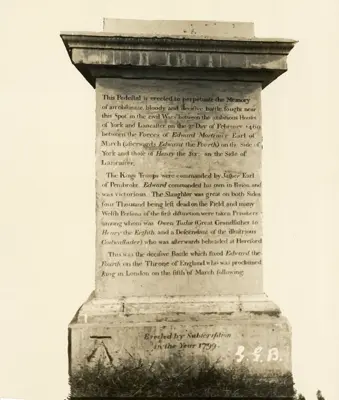 This Pedestal is erected to perpetuate the Memory
of an obstinate, bloody and decisive Battle fought near
this Spot in the civil Wars between the ambitious Houses
of York and Lancaster on the 2 Day of February 1460
between the Forces of Edward Mortimer Earl of
March (afterwards Edward the Fourth) on the Side of
York and those of Henry the Sixth on the Side of
Lancaster.
The Kings Troops were commanded by Jasper Earl
of Pembroke. Edward commanded his own in Person and
was victorious. The Slaughter was great on both Sides
four Thousand being left dead on the Field and many
Welsh Persons of the first distinction were taken Prisoners
among whom was Owen Tudor (Great Grandfather to
Henry the Eighth and a Descendant of the illustrious
Cadwallader) who was afterwards beheaded at Hereford
This was the decisive Battle which fixed Edward the
Fourth on the Throne of England who was proclaimed
King in London on the fifth of March following.
Erected by Subscription
in the Year 1799.
J.G.B.